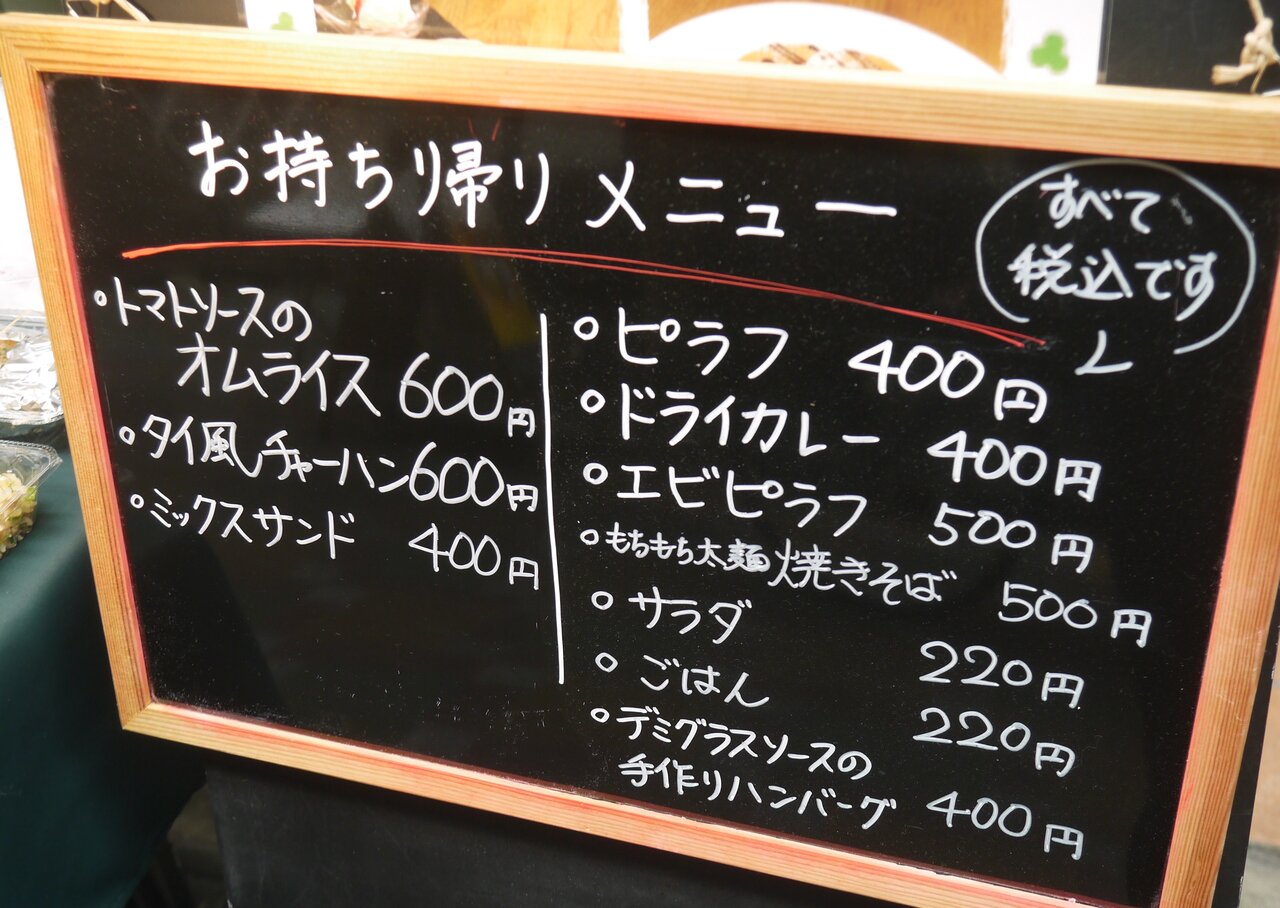 お持ち帰りメニュー
すべて
税込です
◦トマトソースの
オムライス 600円
◦タイ風チャーハン 600円
◦ミックスサンド 400円
◦ピラフ 400円
◦ドライカレー 400円
◦エビピラフ 500円
◦もちもち太麺焼きそば 500円
◦サラダ 220円
◦ごはん 220円
◦デミグラスソースの
手作りハンバーグ 400円